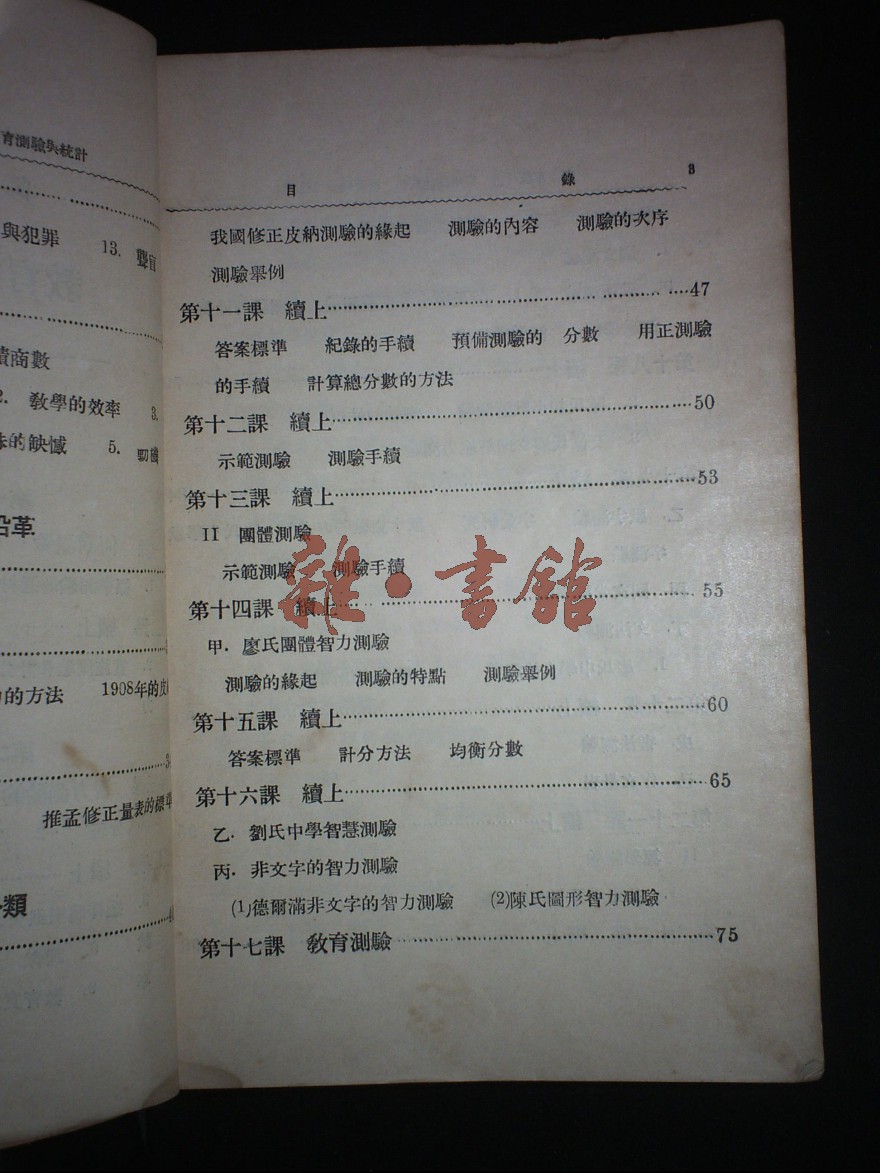 育測驗與統計
與犯罪 13. 聾盲
商數
2. 教學的效率 3.
的缺憾 5.
沿革
的方法 1908年的皮
推孟修正量表的標準
類
目 錄 3
我國修正皮納測驗的緣起 測驗的內容 測驗的次序
測驗舉例
第十一課 續上……47
答案標準 紀錄的手續 預備測驗的 分數 用正測驗
的手續 計算總分數的方法
第十二課 續上……50
示範測驗 測驗手續
第十三課 續上……53
II 團體測驗
示範測驗 測驗手續
第十四課 續上……55
甲. 廖氏團體智力測驗
測驗的緣起 測驗的特點 測驗舉例
第十五課 續上……60
答案標準 計分方法 均衡分數
第十六課 續上……65
乙. 劉氏中學智慧測驗
丙. 非文字的智力測驗
(1)德爾滿非文字的智力測驗 (2)陳氏圖形智力測驗
第十七課 教育測驗……75
雜·書館